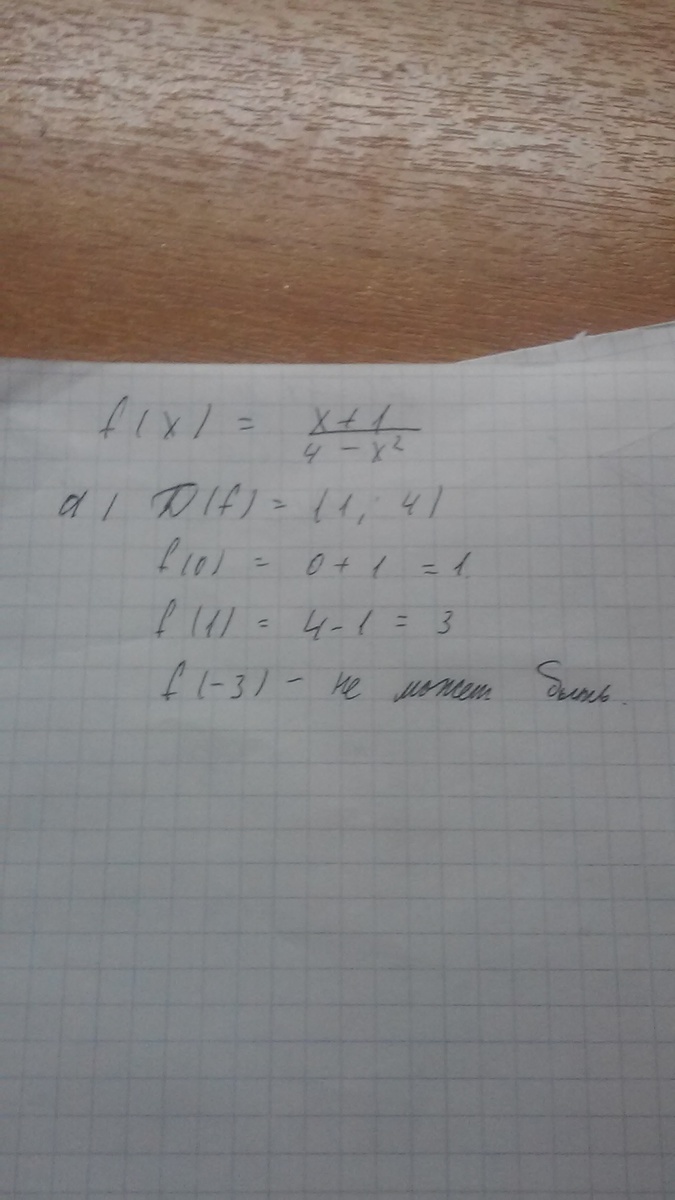 f(x) = x+1 / 4-x²
a) D(f) = (1; 4)
f(0) = 0+1 = 1
f(1) = 4-1 = 3
f(-3) - не может быть.